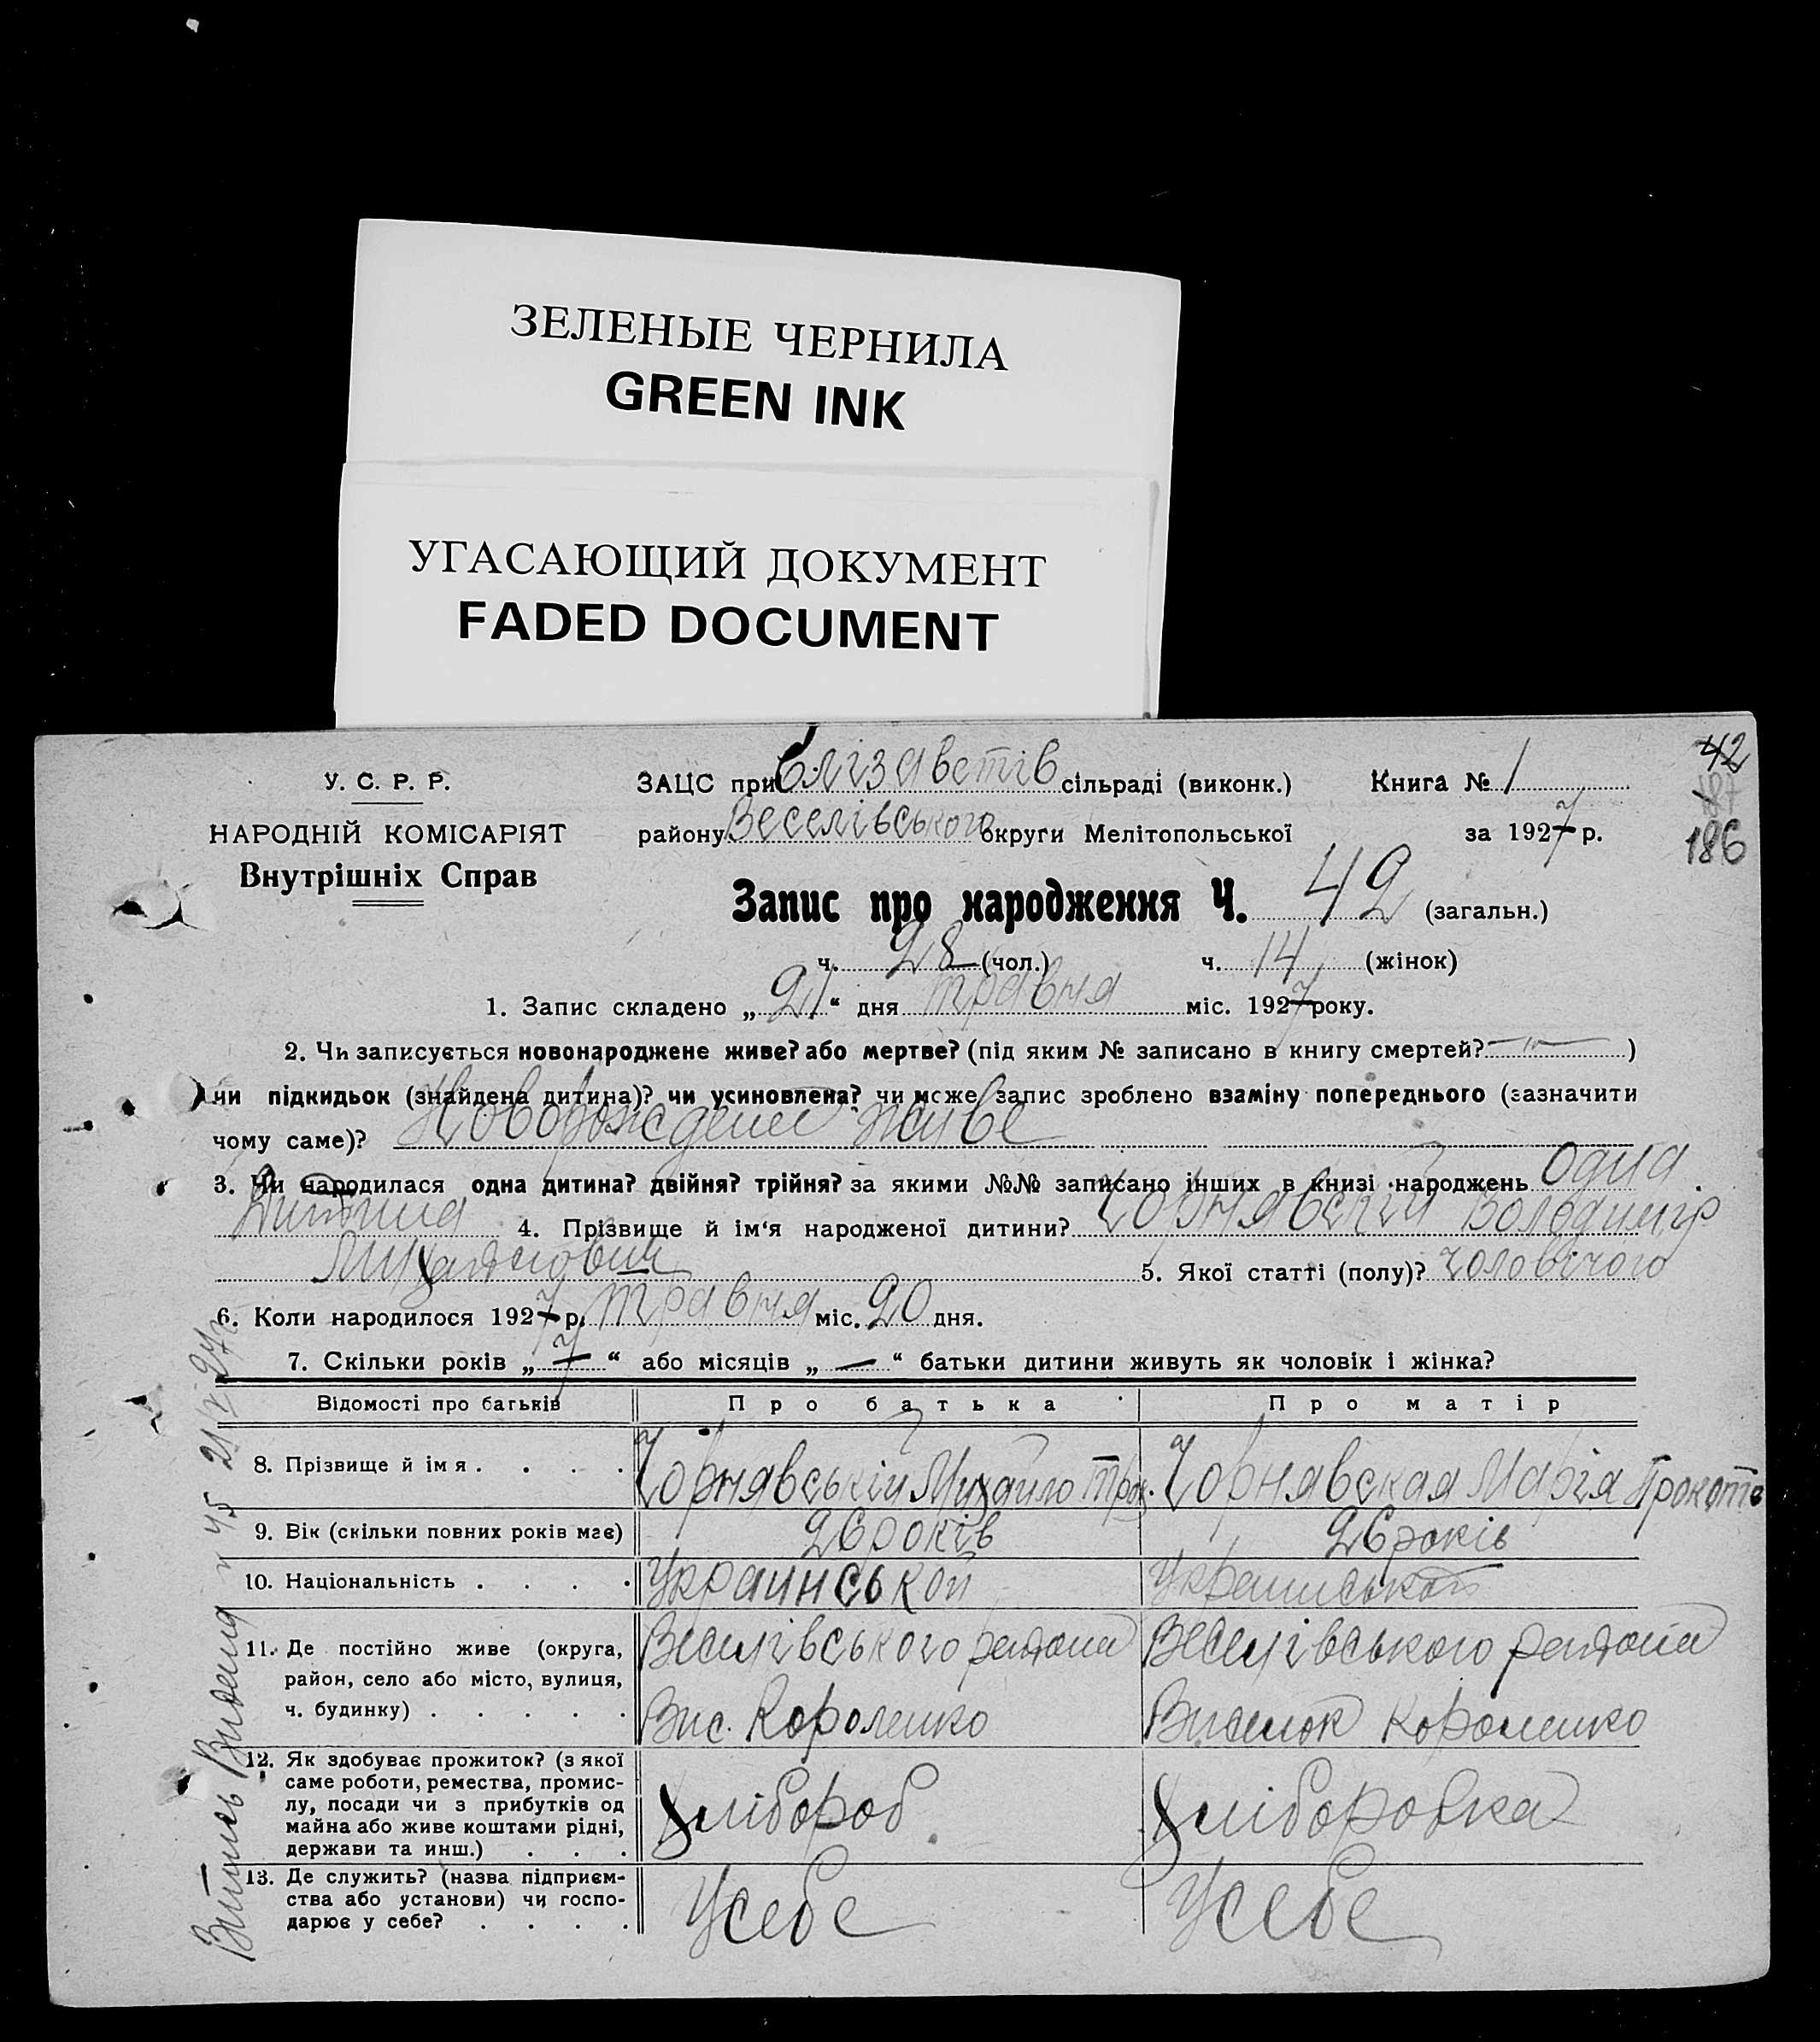 ЗЕЛЕНЫЕ ЧЕРНИЛА
GREEN INK
УГАСАЮЩИЙ ДОКУМЕНТ
FADED DOCUMENT
42
186
У. С. Р. Р.
НАРОДНІЙ КОМІСАРІЯТ
Внутрішніх Справ
ЗАЦС при Єлізаветів сільраді (виконк.) Книга № 1
району Веселівського округи Мелітопольської за 1927 р.
Запис про народження Ч. 42 (загальн.)
ч. 28 (чол.) ч. 14 (жінок)
1. Запис складено „21“ дня травня міс. 1927 року.
2. Чи записується новонароджене живе? або мертве? (під яким № записано в книгу смертей? — " — )
чи підкидьок (знайдена дитина)? чи усиновлена? чи може запис зроблено взаміну попереднього (зазначити
чому саме)? Новорожденне живе
3. Чи народилася одна дитина? двійня? трійня? за якими №№ записано інших в книзі народжень одна
дитина 4. Прізвище й ім'я народженої дитини? Чорнявский Володимір
Михайлович 5. Якої статті (полу)? чоловічого
6. Коли народилося 1927 р. травня міс. 20 дня.
7. Скільки років „7“ або місяців „—“ батьки дитини живуть як чоловік і жінка?
Відомості про батьків Про батька Про матір
8. Прізвище й імя . . . . Чорнявській Михайло Чорнявская Марія
9. Вік (скільки повних років має) 26 років 26 років
10. Національність . . . . Украинськой Украинськой
11. Де постійно живе (округа, район, село або місто, вулиця, ч. будинку) . . . . . Веселівського района Вис. Короленко Веселівського района Виселок Короленко
12. Як здобуває прожиток? (з якої саме роботи, ремества, промислу, посади чи з прибутків од майна або живе коштами рідні, держави та инш.) . . . Хлібороб Хлiборобка
13. Де служить? (назва підприємства або установи) чи господарює у себе? . . . . У себе У себе